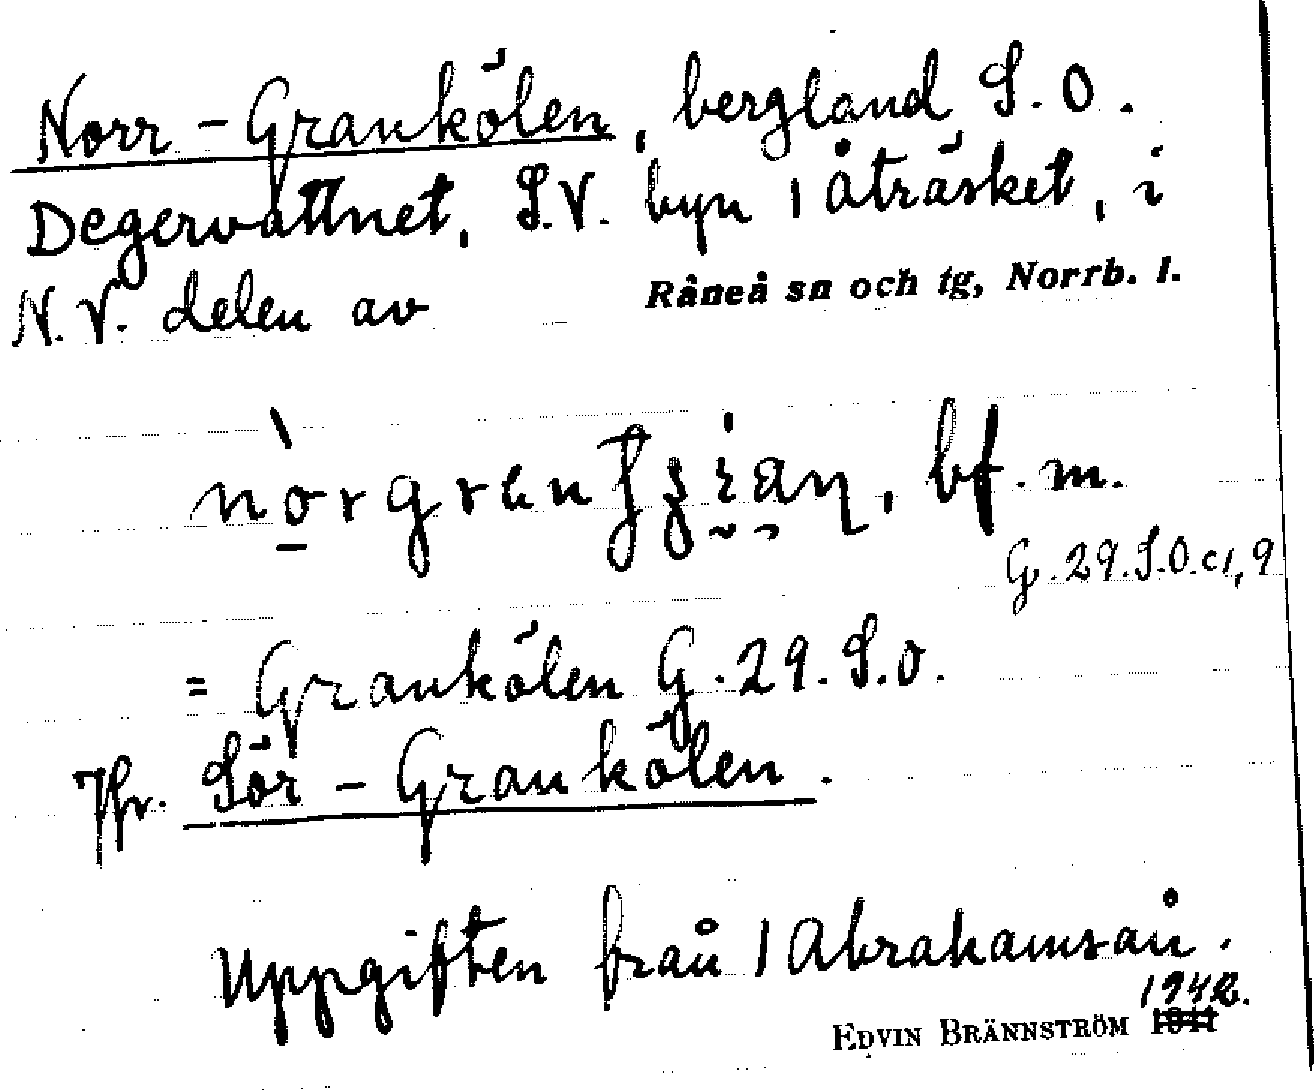 Norr-Grankölen, bergland S.O.
Degervattnet, S.V. byn 1 Åträsket, i
N.V. delen av Råneå sn och tg, Norrb. l.
bf. m.
G. 29. S.O. c1, 9
= Grankölen G. 29. S.O.
Jfr. Sör-Grankölen.
Uppgiften från 1 Abrahamsån.
1942.
EDVIN BRÄNNSTRÖM 1941